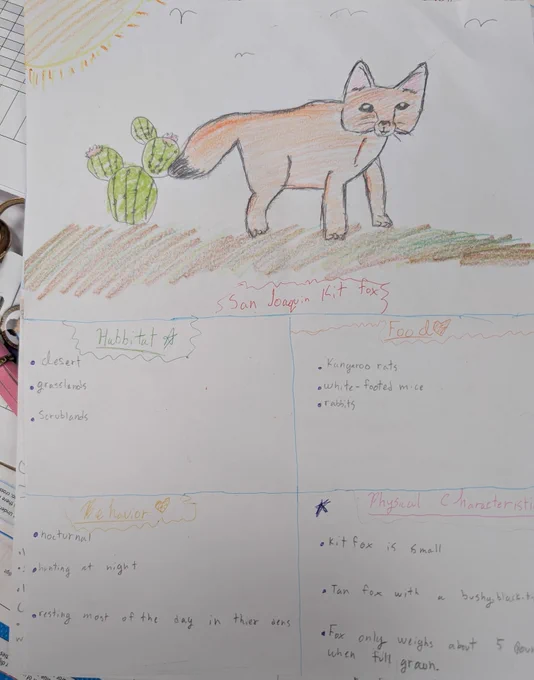 San Joaquin Kit Fox
Habbitat
desert
grasslands
Scrublands
Food
Kangaroo rats
white-footed mice
rabbits
Behavior
nocturnal
hunting at night
resting most of the day in thier dens
Physical Characteristi
Kit fox is small
Tan fox with a bushy, black-t
Fox only weighs about 5 Pou
when full grown.